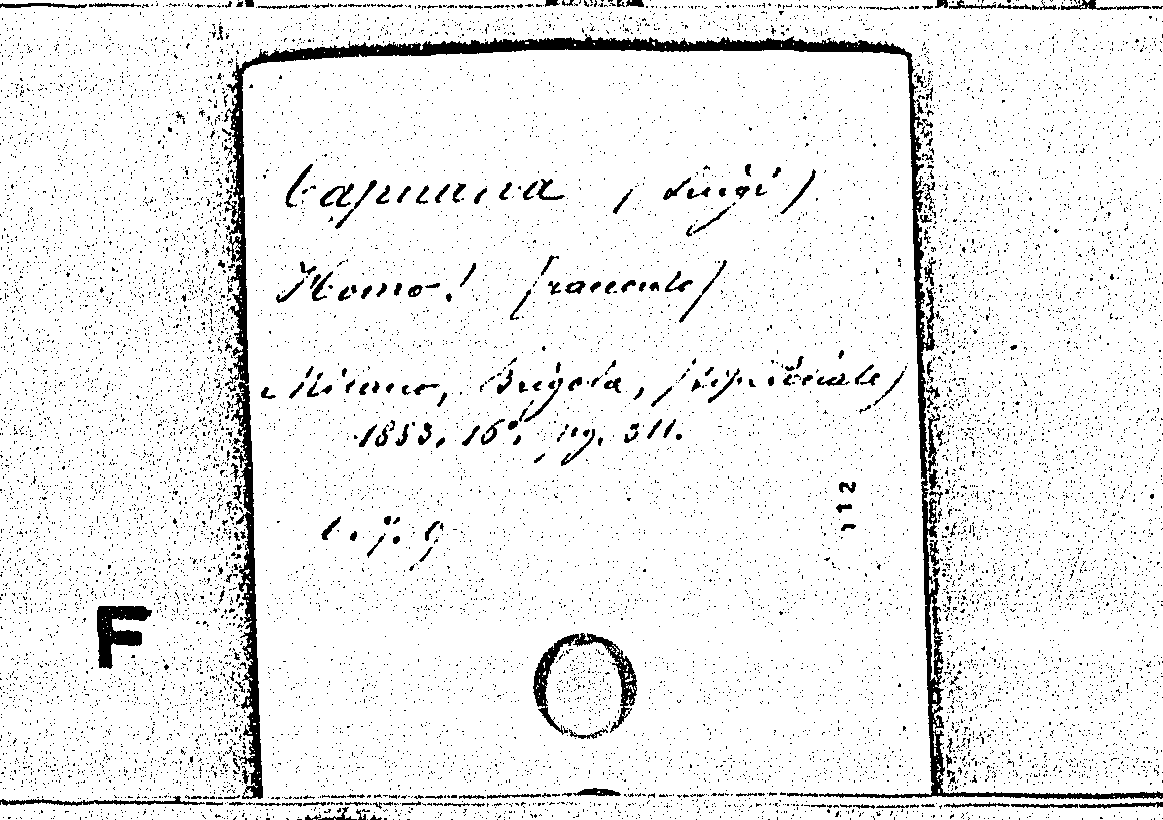 Capuana (Luigi)
Homo! (racconto)
Milano, Brigola, (tip. Sociale)
1883, 16°, pg. 311.
112
F